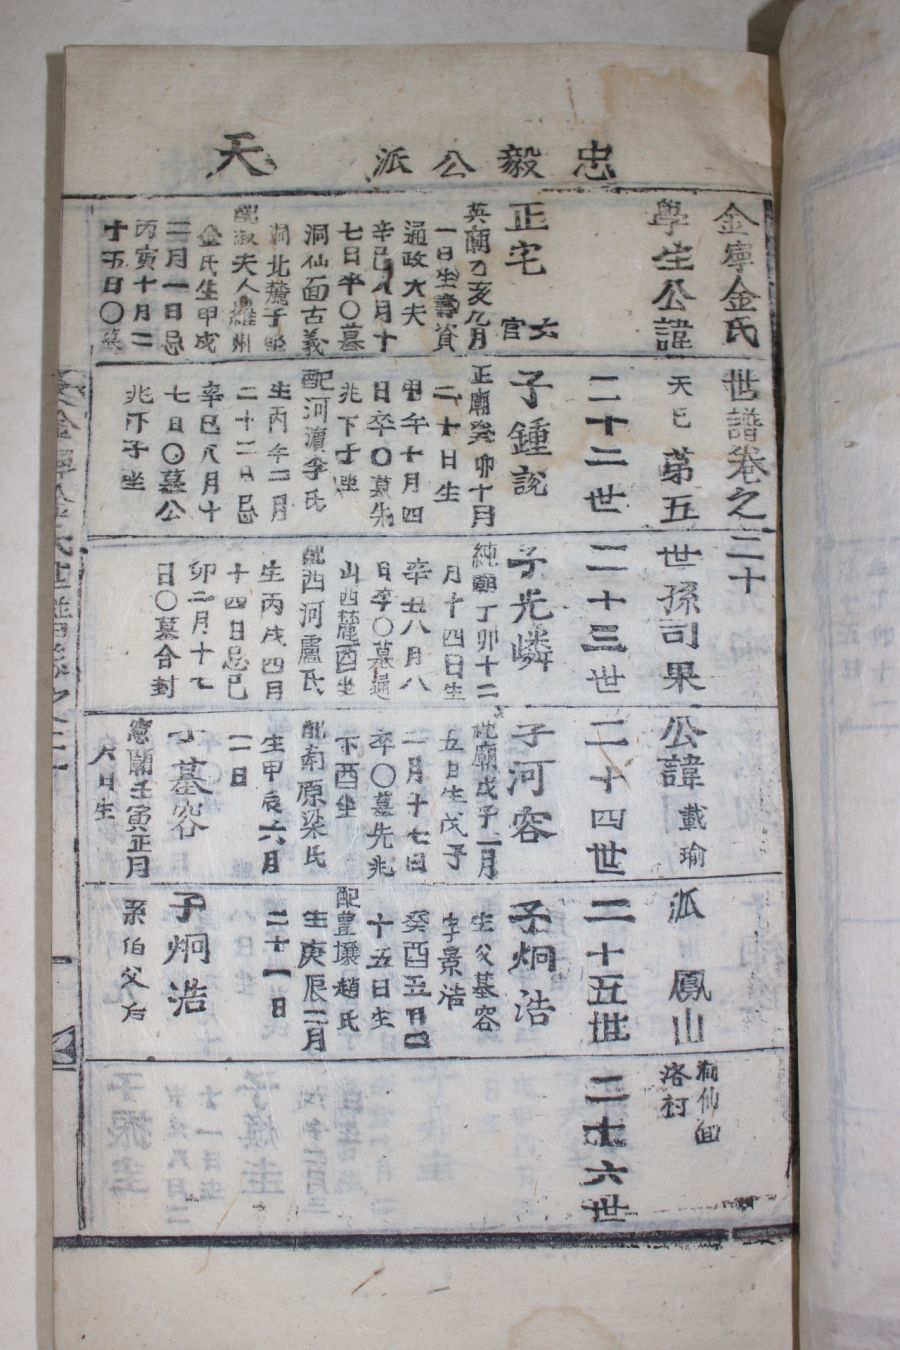 忠毅公派 天
金寧金氏世譜卷之三十
學生公諱天巳第五世孫司果公諱載瑜派 鳳山
洞仙面
洛村
二十二世
二十三世
二十四世
二十五世
二十六世
正宅
女
官
英廟乙亥九月
一日生壽資
通政大夫
辛巳八月十
七日卒〇墓
洞仙面古義
洞北麓子坐
配淑夫人羅州
金氏生甲戌
二月一日忌
丙寅十月二
十五日〇墓
子鍾說
正廟癸卯十月
二十日生
甲午十月四
日卒〇墓先
兆下子坐
配河濱李氏
生丙午二月
二十二日忌
辛巳八月十
七日〇墓公
兆下子坐
子光嶙
純廟丁卯十二
月十四日生
辛丑八月八
日卒〇墓通
山西麓酉坐
配西河盧氏
生丙戌四月
十四日忌己
卯二月十七
日〇墓合封
子河容
純廟戊子二月
五日生戊子
二月十七日
卒〇墓先兆
下酉坐
配南原梁氏
生甲辰六月
一日
子基容
憲廟壬寅正月
六日生
子炯浩
生父基容
字景浩
癸酉五月二
十五日生
配豊壤趙氏
生庚辰二月
二十一日
子炯浩
系伯父后